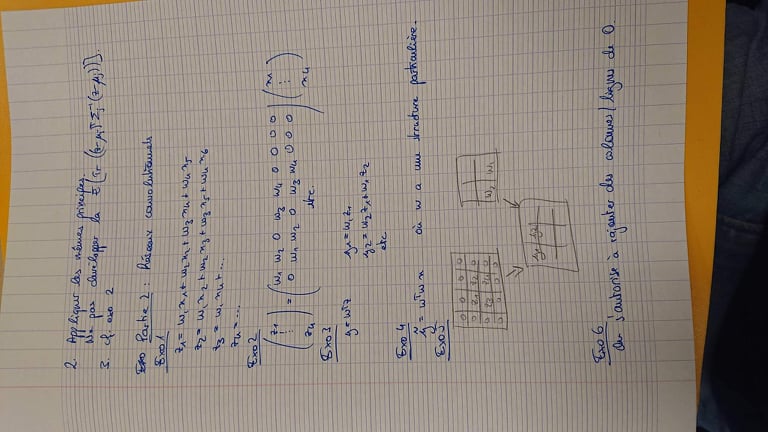 2. Appliquer les mêmes principes.
Ne pas développer la
3. cf. exo 2
Partie 2 : Réseaux convolutionnels
Exo 1
z₁ = w₁x₁ + w₂x₂ + w₃x₄ + w₄x₅
z₂ = w₁x₂ + w₂x₃ + w₃x₅ + w₄x₆
z₃ = w₁x₄ + ...
z₄ = ...
Exo 2
(z₁ ⋮ z₄) = (w₁ w₂ 0 w₃ w₄ 0 0 0 0
0 w₁ w₂ 0 w₃ w₄ 0 0 0
etc.
Exo 3
y = wᵀz
y₁ = w₁z₁
y₂ = w₂z₁ + w₁z₂
etc
Exo 4
x̃ = wᵀwx où w a une structure particulière.
Exo 5
0 0 0 0
0 z₁ z₂ 0
0 z₃ z₄ 0
0 0 0 0
w₂ w₁
y₁ y₂
Exo 6
j'autorise à rajouter des colonnes / lignes de 0.